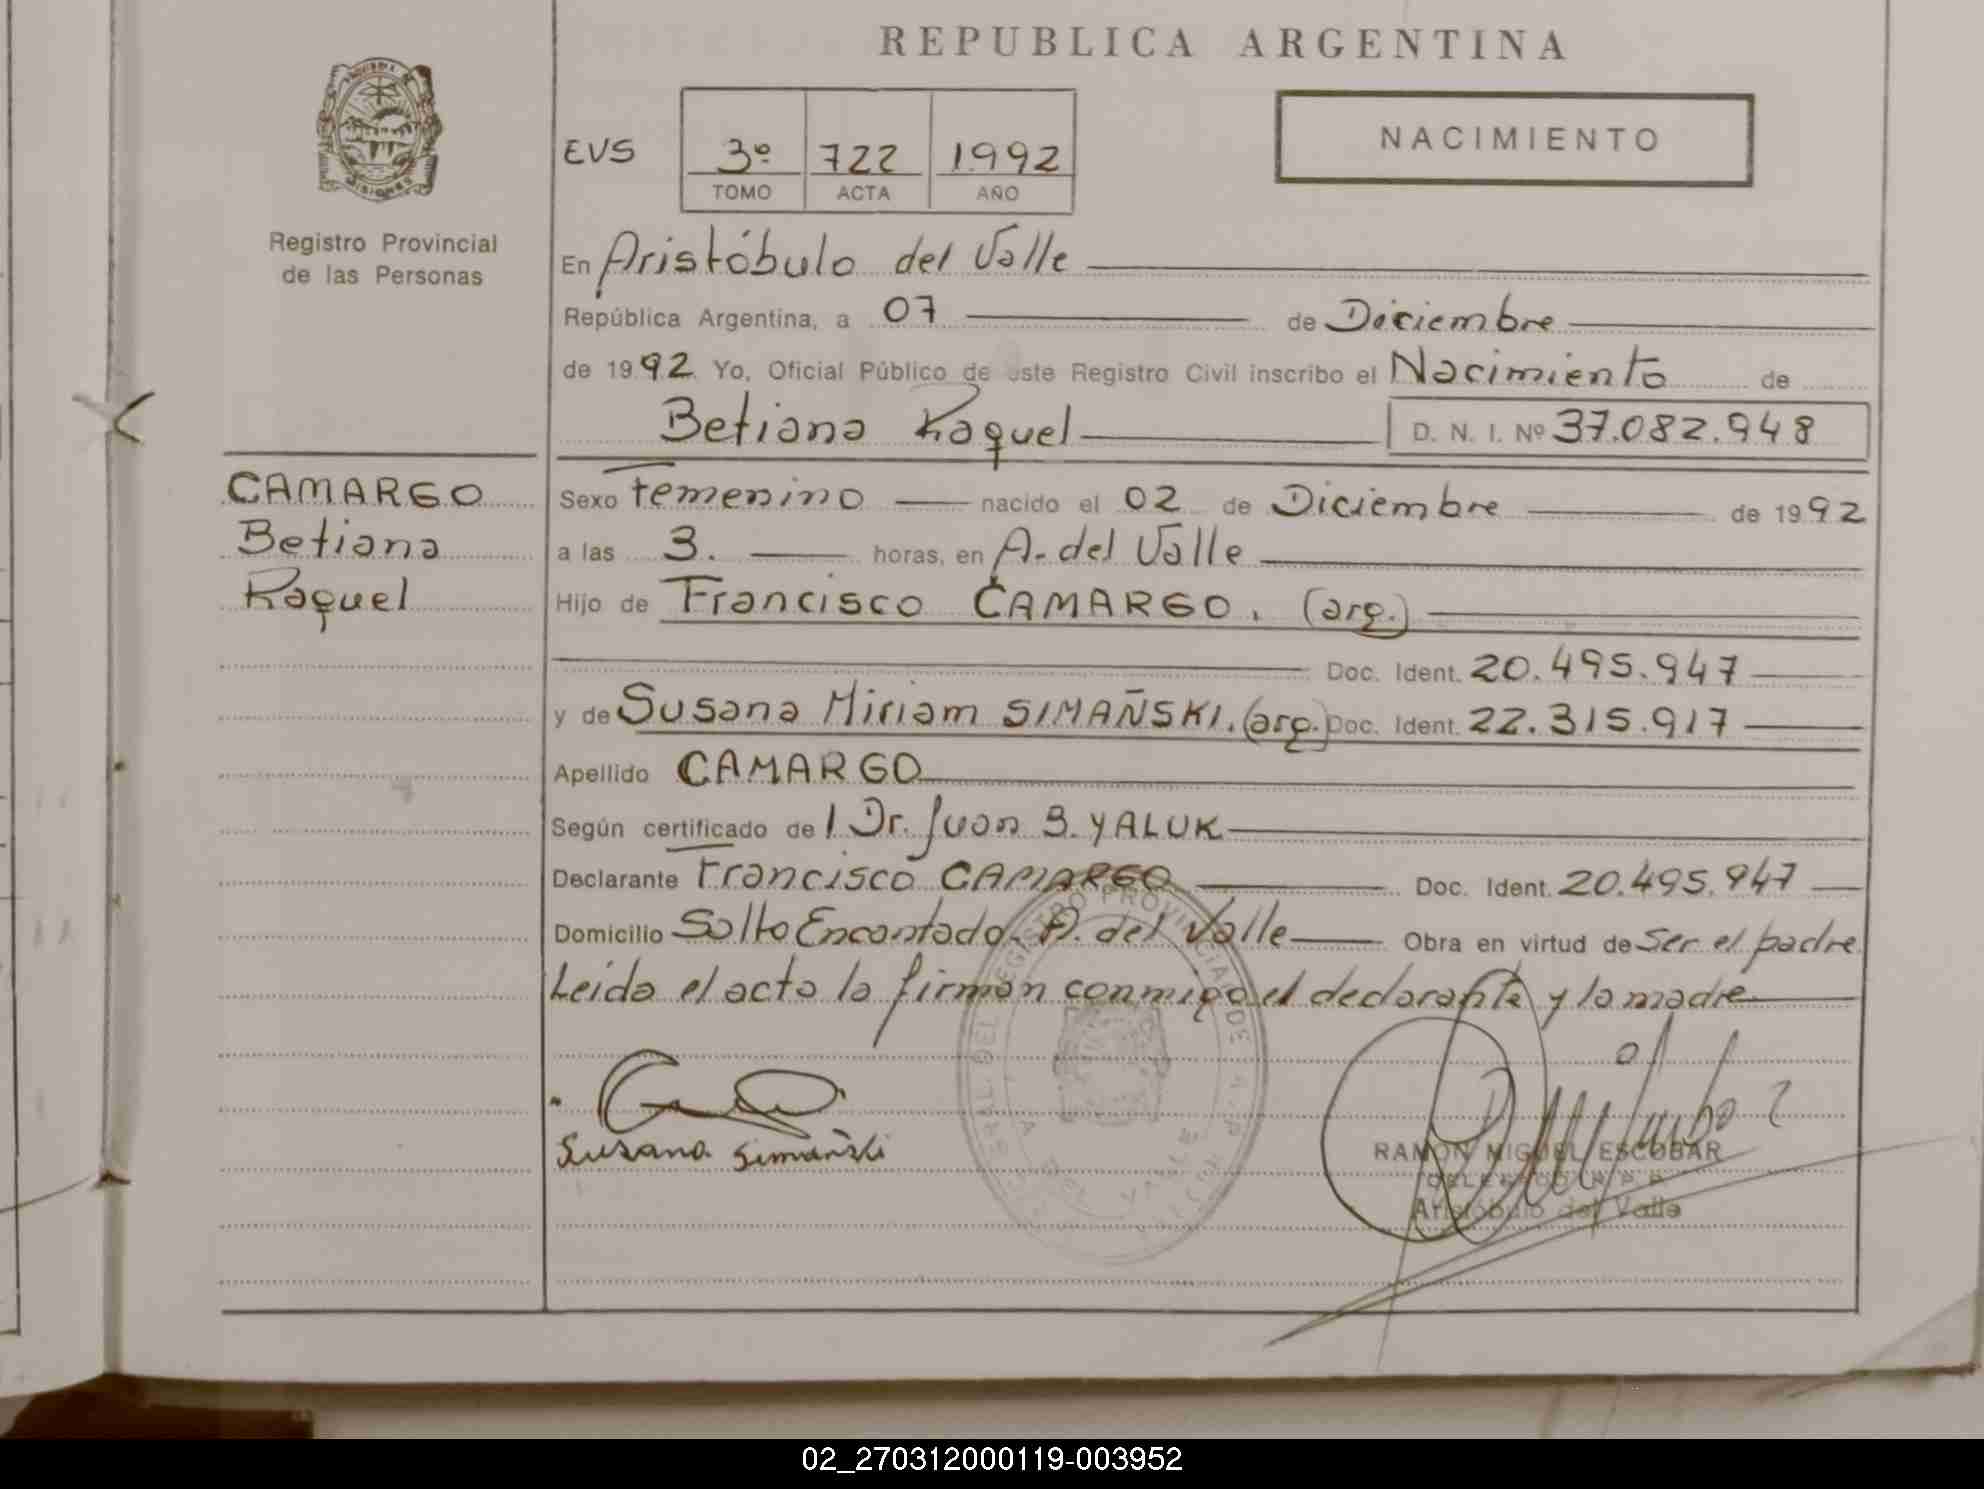 REPUBLICA ARGENTINA
PROVINCIA DE
MISIONES
Registro Provincial
de las Personas
EVS
3º 722 1992
TOMO ACTA AÑO
NACIMIENTO
En Aristóbulo del Valle
República Argentina, a 07 de Diciembre
de 1992 Yo, Oficial Público de este Registro Civil inscribo el Nacimiento de
Betiana Raquel D. N. I. Nº 37.082.948
CAMARGO
Betiana
Raquel
Sexo Femenino nacido el 02 de Diciembre de 1992
a las 3. horas, en A. del Valle
Hijo de Francisco CAMARGO. (arg.)
Doc. Ident. 20.495.947
y de Susana Miriam SIMAÑSKI. (arg.) Doc. Ident. 22.315.917
Apellido CAMARGO
Según certificado de l Dr. Juan B. YALUK
Declarante Francisco CAMARGO Doc. Ident. 20.495.947
Domicilio Salto Encantado. A. del Valle Obra en virtud de Ser el padre
Leida el acta la firman conmigo el declarante y la madre
Susana Simañski
RAMON MIGUEL ESCOBAR
DELEGADO R. P. P.
Aristóbulo del Valle
02_270312000119-003952